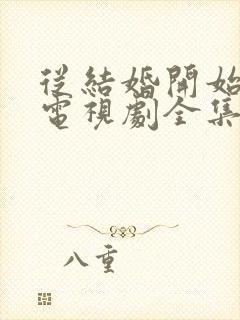 從結婚開始
電視劇全集
八重